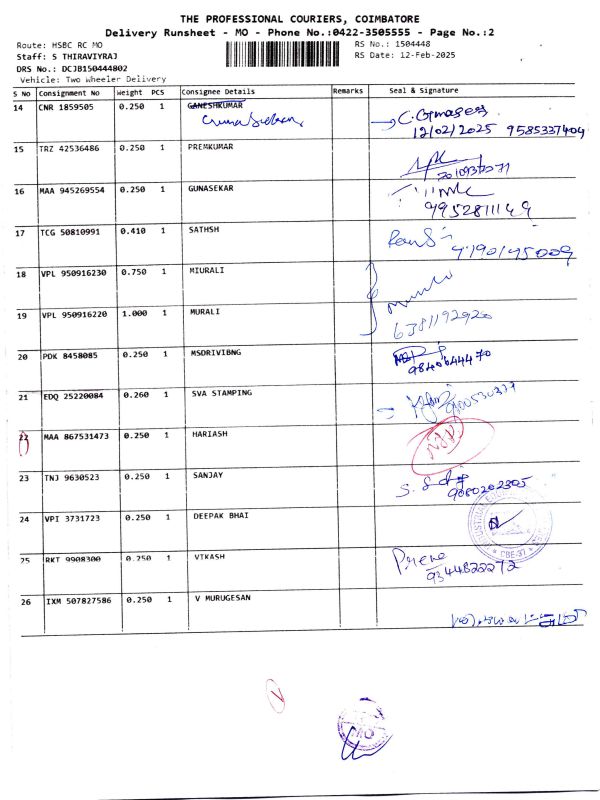 THE PROFESSIONAL COURIERS, COIMBATORE
Delivery Runsheet - MO - Phone No.:0422-3505555 - Page No.:2
Route: HSBC RC MO RS No.: 1504448
Staff: S THIRAVIYRAJ RS Date: 12-Feb-2025
DRS No.: DCJB150444802
Vehicle: Two Wheeler Delivery
S No Consignment No Weight PCS Consignee Details Remarks Seal & Signature
14 CNR 1859505 0.250 1 GANESHKUMAR
12/02/2025 9585337404
15 TRZ 42536486 0.250 1 PREMKUMAR
16 MAA 945269554 0.250 1 GUNASEKAR
9952811149
17 TCG 50810991 0.410 1 SATHSH
18 VPL 950916230 0.750 1 MIURALI
19 VPL 950916220 1.000 1 MURALI
6381192920
20 PDK 8458085 0.250 1 MSDRIVIBNG
9840644470
21 EDQ 25220084 0.260 1 SVA STAMPING
22 MAA 867531473 0.250 1 HARIASH
23 TNJ 9630523 0.250 1 SANJAY
9080202305
24 VPI 3731723 0.250 1 DEEPAK BHAI
CBE-37
25 RKT 9908300 0.250 1 VIKASH
9344822272
26 IXM 507827586 0.250 1 V MURUGESAN
MO